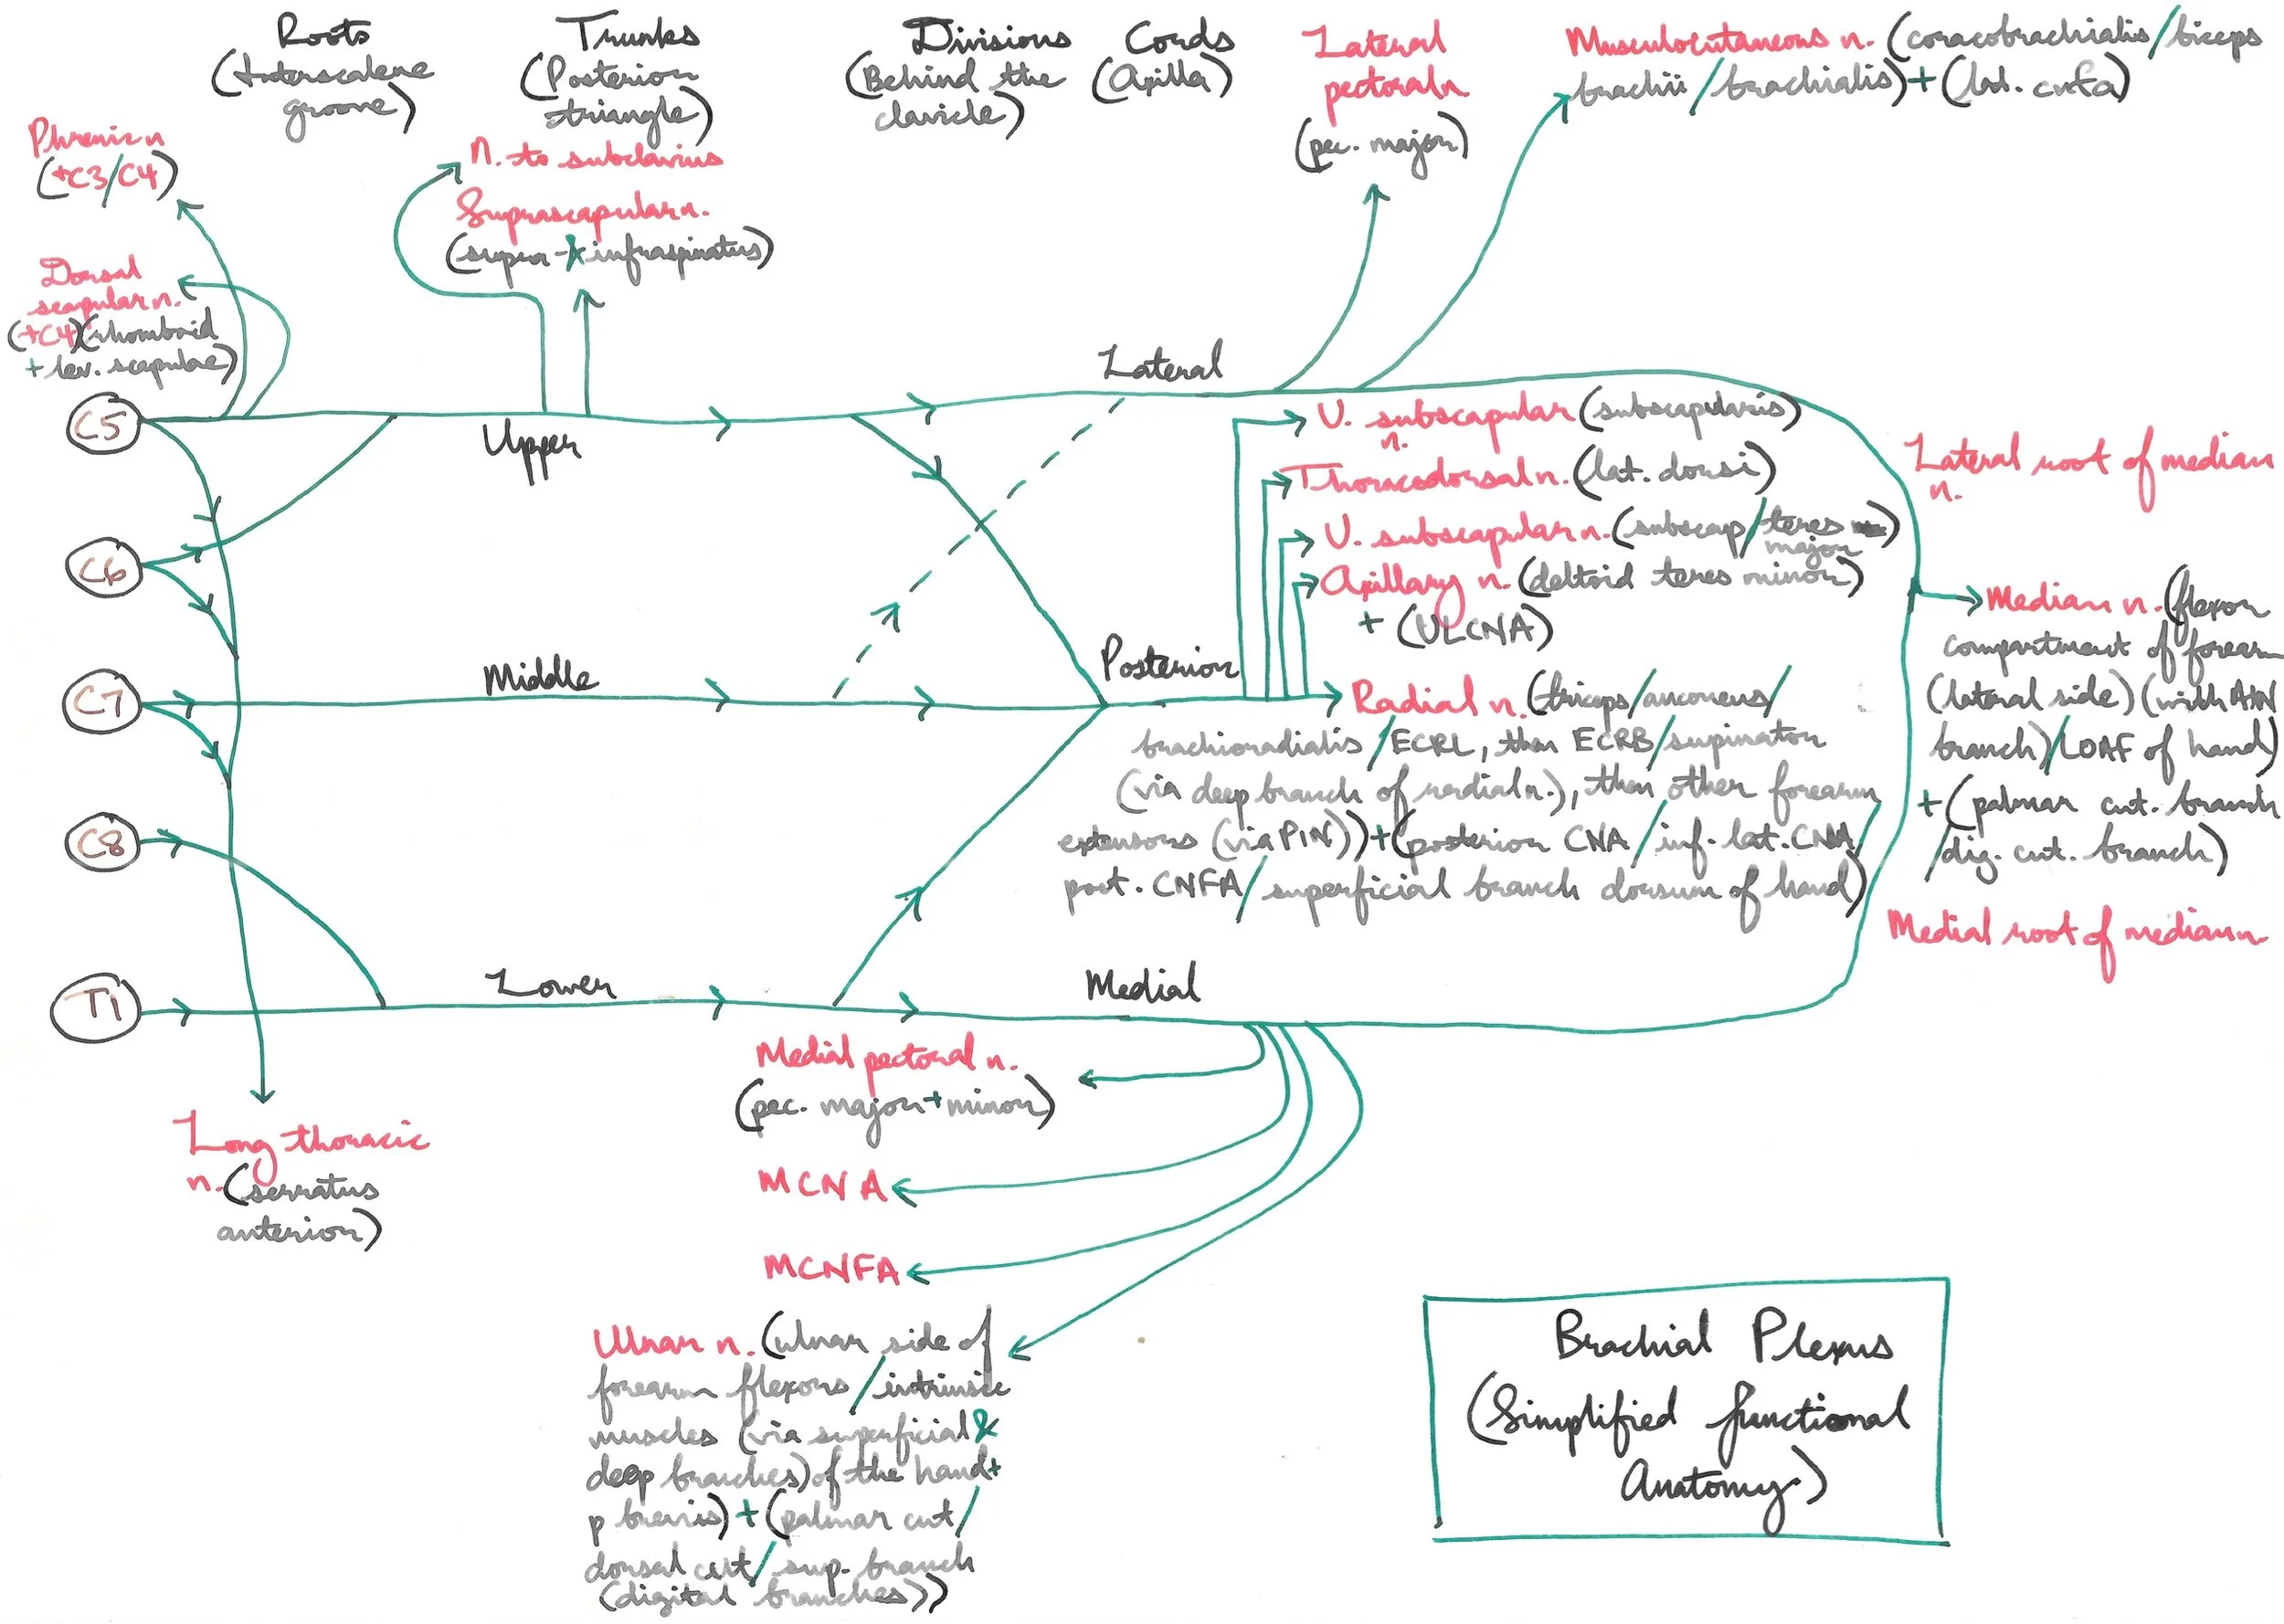 Roots
(Interscalene
groove)
Trunks
(Posterior
triangle)
Divisions
(Behind the
clavicle)
Cords
(Axilla)
Lateral
pectoral n.
(pec. major)
Musculocutaneous n. (coracobrachialis/biceps
brachii/brachialis) + (lat. cnfa)
Phrenic n
(+C3/C4)
N. to subclavius
Suprascapular n.
(supra- & infraspinatus)
Dorsal
scapular n.
(+C4) (rhomboid
+ lev. scapulae)
C5
Upper
Lateral
U. subscapular (subscapularis)
n.
Thoracodorsal n. (lat. dorsi)
U. subscapular n. (subscap/teres
major)
Axillary n. (deltoid teres minor)
+ (ULCNA)
Lateral root of median
n.
C6
C7
Middle
Posterior
Radial n. (triceps/anconeus/
brachioradialis/ECRL, then ECRB/supinator
(via deep branch of radial n.), then other forearm
extensors (via PIN)) + (posterior CNA/inf. lat. CNA/
post. CNFA/superficial branch dorsum of hand)
Median n. (flexor
compartment of forearm
(lateral side) (with AIN
branch)/LOAF of hand)
+ (palmar cut. branch
/dig. cut. branch)
Medial root of median n.
C8
T1
Lower
Medial
Medial pectoral n.
(pec. major + minor)
Long thoracic
n. (serratus
anterior)
MCNA
MCNFA
Ulnar n. (ulnar side of
forearm flexors/intrinsic
muscles (via superficial &
deep branches) of the hand +
p brevis) + (palmar cut/
dorsal cut/sup. branch
(digital branches))
Brachial Plexus
(Simplified functional
Anatomy)